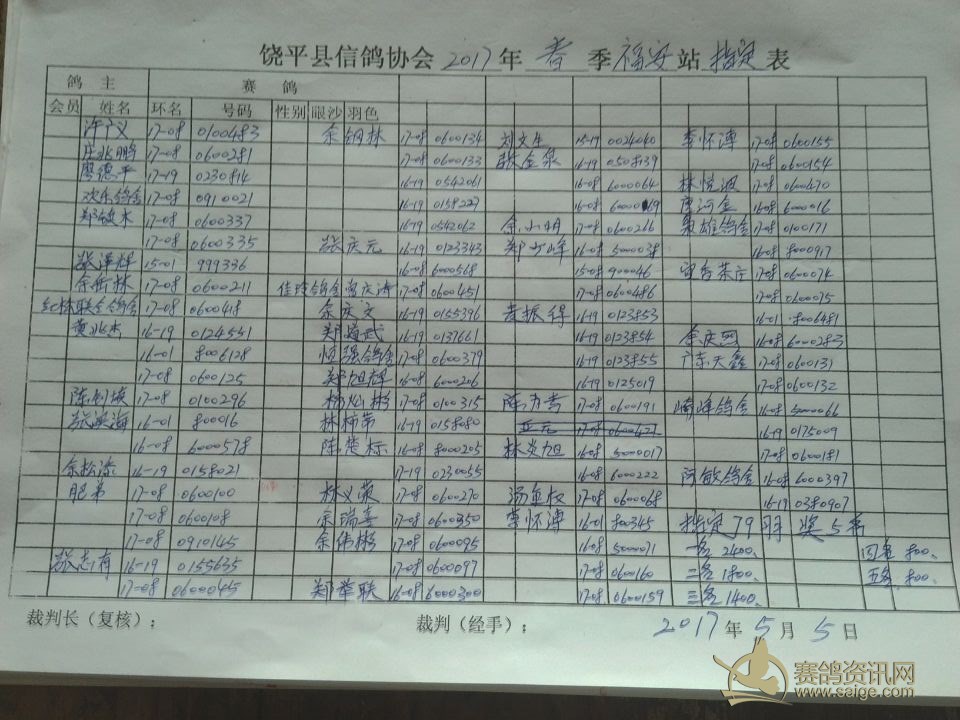 饶平县信鸽协会 2017年 春 季 福安 站 指定 表
鸽 主 赛 鸽
会员 姓名 环名 号码 性别 眼沙 羽色
许广义 17-08 0100483 余钢林 17-08 0600134 刘文生 15-19 0024040 李怀溥 17-08 0600155
庄兆鹏 17-08 0600281 17-08 0600133 张金泉 16-19 0508139 17-08 0600154
廖德平 17-19 0230814 16-19 0542061 16-08 6000064 林悦波 17-08 0600470
欢乐鸽舍 17-08 0910021 16-19 0158227 16-08 6000069 16-08 6000016
郑敏水 17-08 0600337 16-19 0542062 余小明 17-08 0600266 枭雄鸽舍 17-08 0100171
17-08 0600335 张庆元 16-19 0123343 郑少峰 16-08 5000038 16-08 8000917
张汉辉 15-01 999336 16-08 6000568 15-08 900046 17-08 0600074
余衔林 17-08 0600211 佳玲鸽舍 17-08 0600451 17-08 0600486 17-08 0600075
红棉联合鸽舍 17-08 0600418 余庆文 16-19 0155396 麦振得 16-19 0123853 16-01 8006481
黄兆杰 16-19 0124551 郑道武 16-19 0137661 16-19 0123854 余庆国 16-08 6000283
16-01 8006128 恒强鸽舍 17-08 0600379 16-19 0123855 广东天鑫 17-08 0600131
17-08 0600125 郑旭辉 16-08 6000206 16-19 0125019 17-08 0600132
17-08 0100296 17-08 0100315 17-08 0600191 崎峰鸽舍 16-08 5000066
张洪海 16-01 800016 林柿弟 16-19 0158080 17-08 0600421 16-19 0175009
16-08 6000578 陈楚标 16-08 8000205 林炎旭 16-08 5000017 17-08 0600181
余松涤 16-19 0158021 17-19 0230055 16-08 6000222 阿敏鸽舍 16-08 6000397
肥弟 17-08 0600100 林义荣 17-08 0600270 汤鱼权 17-08 0600068 16-19 0380907
17-08 0600108 余瑞喜 17-08 0600350 李怀溥 16-01 800345 指定79羽 奖5名
17-08 0910145 余伟彬 17-08 0600095 16-08 5000071 一名 2400、 四名 800、
张志有 16-19 0155635 17-08 0600097 17-08 0600160 二名 1800、 五名 800、
17-08 0600045 郑举联 16-08 6000300 17-08 0600159 三名 1400、
裁判长（复核）： 裁判（经手）： 2017年5月5日
赛鸽资讯网
www.saige.com